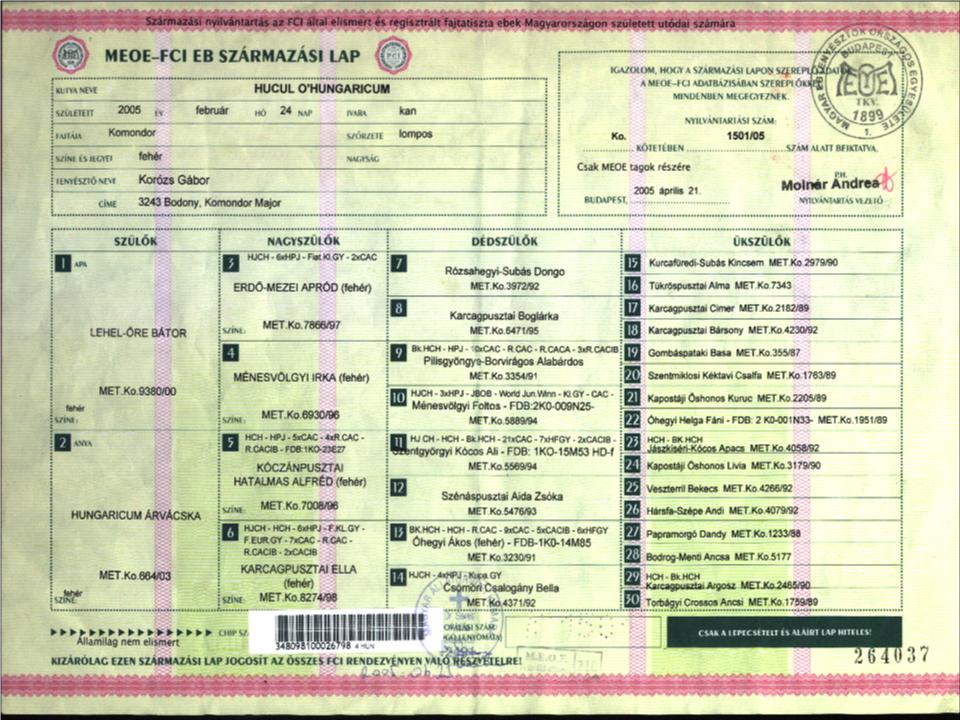 Származási nyilvántartás az FCI által elismert és regisztrált fajtatiszta ebek Magyarországon született utódai számára
MEOE-FCI EB SZÁRMAZÁSI LAP
KUTYA NEVE HUCUL O'HUNGARICUM
SZÜLETETT 2005 ÉV február HÓ 24 NAP IVARA kan
FAJTÁJA Komondor SZŐRZETE lompos
SZÍNE ÉS JEGYEI fehér NAGYSÁG
TENYÉSZTŐ NEVE Korózs Gábor
CÍME 3243 Bodony, Komondor Major
IGAZOLOM, HOGY A SZÁRMAZÁSI LAPON SZEREPLŐ ADATOK
A MEOE-FCI ADATBÁZISÁBAN SZEREPLŐKKEL
MINDENBEN MEGEGYEZNEK.
NYILVÁNTARTÁSI SZÁM:
Ko. 1501/05
KÖTETÉBEN SZÁM ALATT BEIKTATVA.
Csak MEOE tagok részére
P.H.
2005 április 21. Molnár Andrea
BUDAPEST, NYILVÁNTARTÁS VEZETŐ
MAGYAR EBTENYÉSZTŐK ORSZÁGOS EGYESÜLETE
BUDAPEST
MEOE
TKV.
1899
1.
SZÜLŐK
1 APA
LEHEL-ŐRE BÁTOR
MET.Ko.9380/00
fehér
SZÍNE:
2 ANYA
HUNGARICUM ÁRVÁCSKA
MET.Ko.664/03
fehér
SZÍNE:
NAGYSZÜLŐK
3 HJCH - 6xHPJ - Fiat.Kl.GY - 2xCAC
ERDŐ-MEZEI APRÓD (fehér)
SZÍNE: MET.Ko.7866/97
4
MÉNESVÖLGYI IRKA (fehér)
SZÍNE: MET.Ko.6930/96
5 HCH - HPJ - 5xCAC - 4xR.CAC -
R.CACIB - FDB:1KO-23E27
KÓCZÁNPUSZTAI
HATALMAS ALFRÉD (fehér)
SZÍNE: MET.Ko.7008/96
6 HJCH - HCH - 6xHPJ - F.KL.GY -
F.EUR.GY - 7xCAC - R.CAC -
R.CACIB - 2xCACIB
KARCAGPUSZTAI ELLA
(fehér)
SZÍNE: MET.Ko.8274/98
DÉDSZÜLŐK
7
Rózsahegyi-Subás Dongo
MET.Ko.3972/92
8
Karcagpusztai Boglárka
MET.Ko.6471/95
9 Bk.HCH - HPJ - 10xCAC - R.CAC - R.CACA - 3xR.CACIB
Pilisgyöngye-Borvirágos Alabárdos
MET.Ko.3354/91
10 HJCH - 3xHPJ - JBOB - World Jun.Winn - Kl.GY - CAC -
Ménesvölgyi Foltos - FDB:2K0-009N25-
MET.Ko.5889/94
11 HJ CH - HCH - Bk.HCH - 21xCAC - 7xHFGY - 2xCACIB -
Szentgyörgyi Kócos Ali - FDB: 1KO-15M53 HD-f
MET.Ko.5569/94
12
Szénáspusztai Aida Zsóka
MET.Ko.5476/93
13 BK.HCH - HCH - R.CAC - 9xCAC - 5xCACIB - 6xHFGY
Óhegyi Ákos (fehér) - FDB-1K0-14M85
MET.Ko.3230/91
14 HJCH - 4xHPJ - Kupa.GY
Csömöri Csalogány Bella
MET.Ko.4371/92
ÜKSZÜLŐK
15 Kurcafüredi-Subás Kincsem MET.Ko.2979/90
16 Tükröspusztai Alma MET.Ko.7343
17 Karcagpusztai Cimer MET.Ko.2182/89
18 Karcagpusztai Bársony MET.Ko.4230/92
19 Gombáspataki Basa MET.Ko.355/87
20 Szentmiklosi Kéktavi Csalfa MET.Ko.1763/89
21 Kapostáji Őshonos Kuruc MET.Ko.2205/89
22 Óhegyi Helga Fáni - FDB: 2 K0-001N33- MET.Ko.1951/89
23 HCH - BK.HCH
Jászkiséri-Kócos Apacs MET.Ko.4058/92
24 Kapostáji Őshonos Lívia MET.Ko.3179/90
25 Veszterril Bekecs MET.Ko.4266/92
26 Hársfa-Szépe Andi MET.Ko.4079/92
27 Papramorgó Dandy MET.Ko.1233/88
28 Bodrog-Menti Ancsa MET.Ko.5177
29 HCH - Bk.HCH
Karcagpusztai Argosz MET.Ko.2465/90
30 Torbágyi Crossos Ancsi MET.Ko.1759/89
Államilag nem elismert
CHIP SZ
348098100026798 4 HUN
CSAK A LEPECSÉTELT ÉS ALÁÍRT LAP HITELES!
264037
KIZÁRÓLAG EZEN SZÁRMAZÁSI LAP JOGOSÍT AZ ÖSSZES FCI RENDEZVÉNYEN VALÓ RÉSZVÉTELRE!
M.E.O.E.